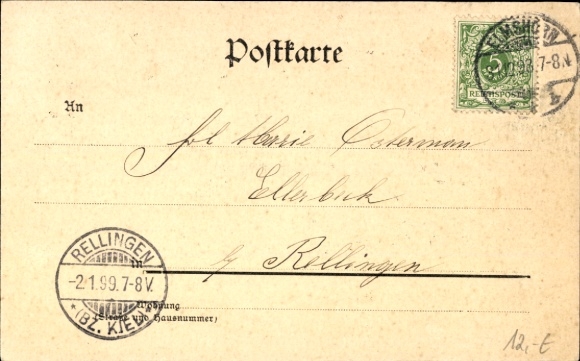 Postkarte
ELMSHORN
7-8 N
5
REICHSPOST
An
Frl Marie Osterman
Ellerbeck
b/ Rellingen
in
RELLINGEN
-2.1.99.7-8V.
* (BZ. KIEL) *
Wohnung
(Straße und Hausnummer)
12,-E